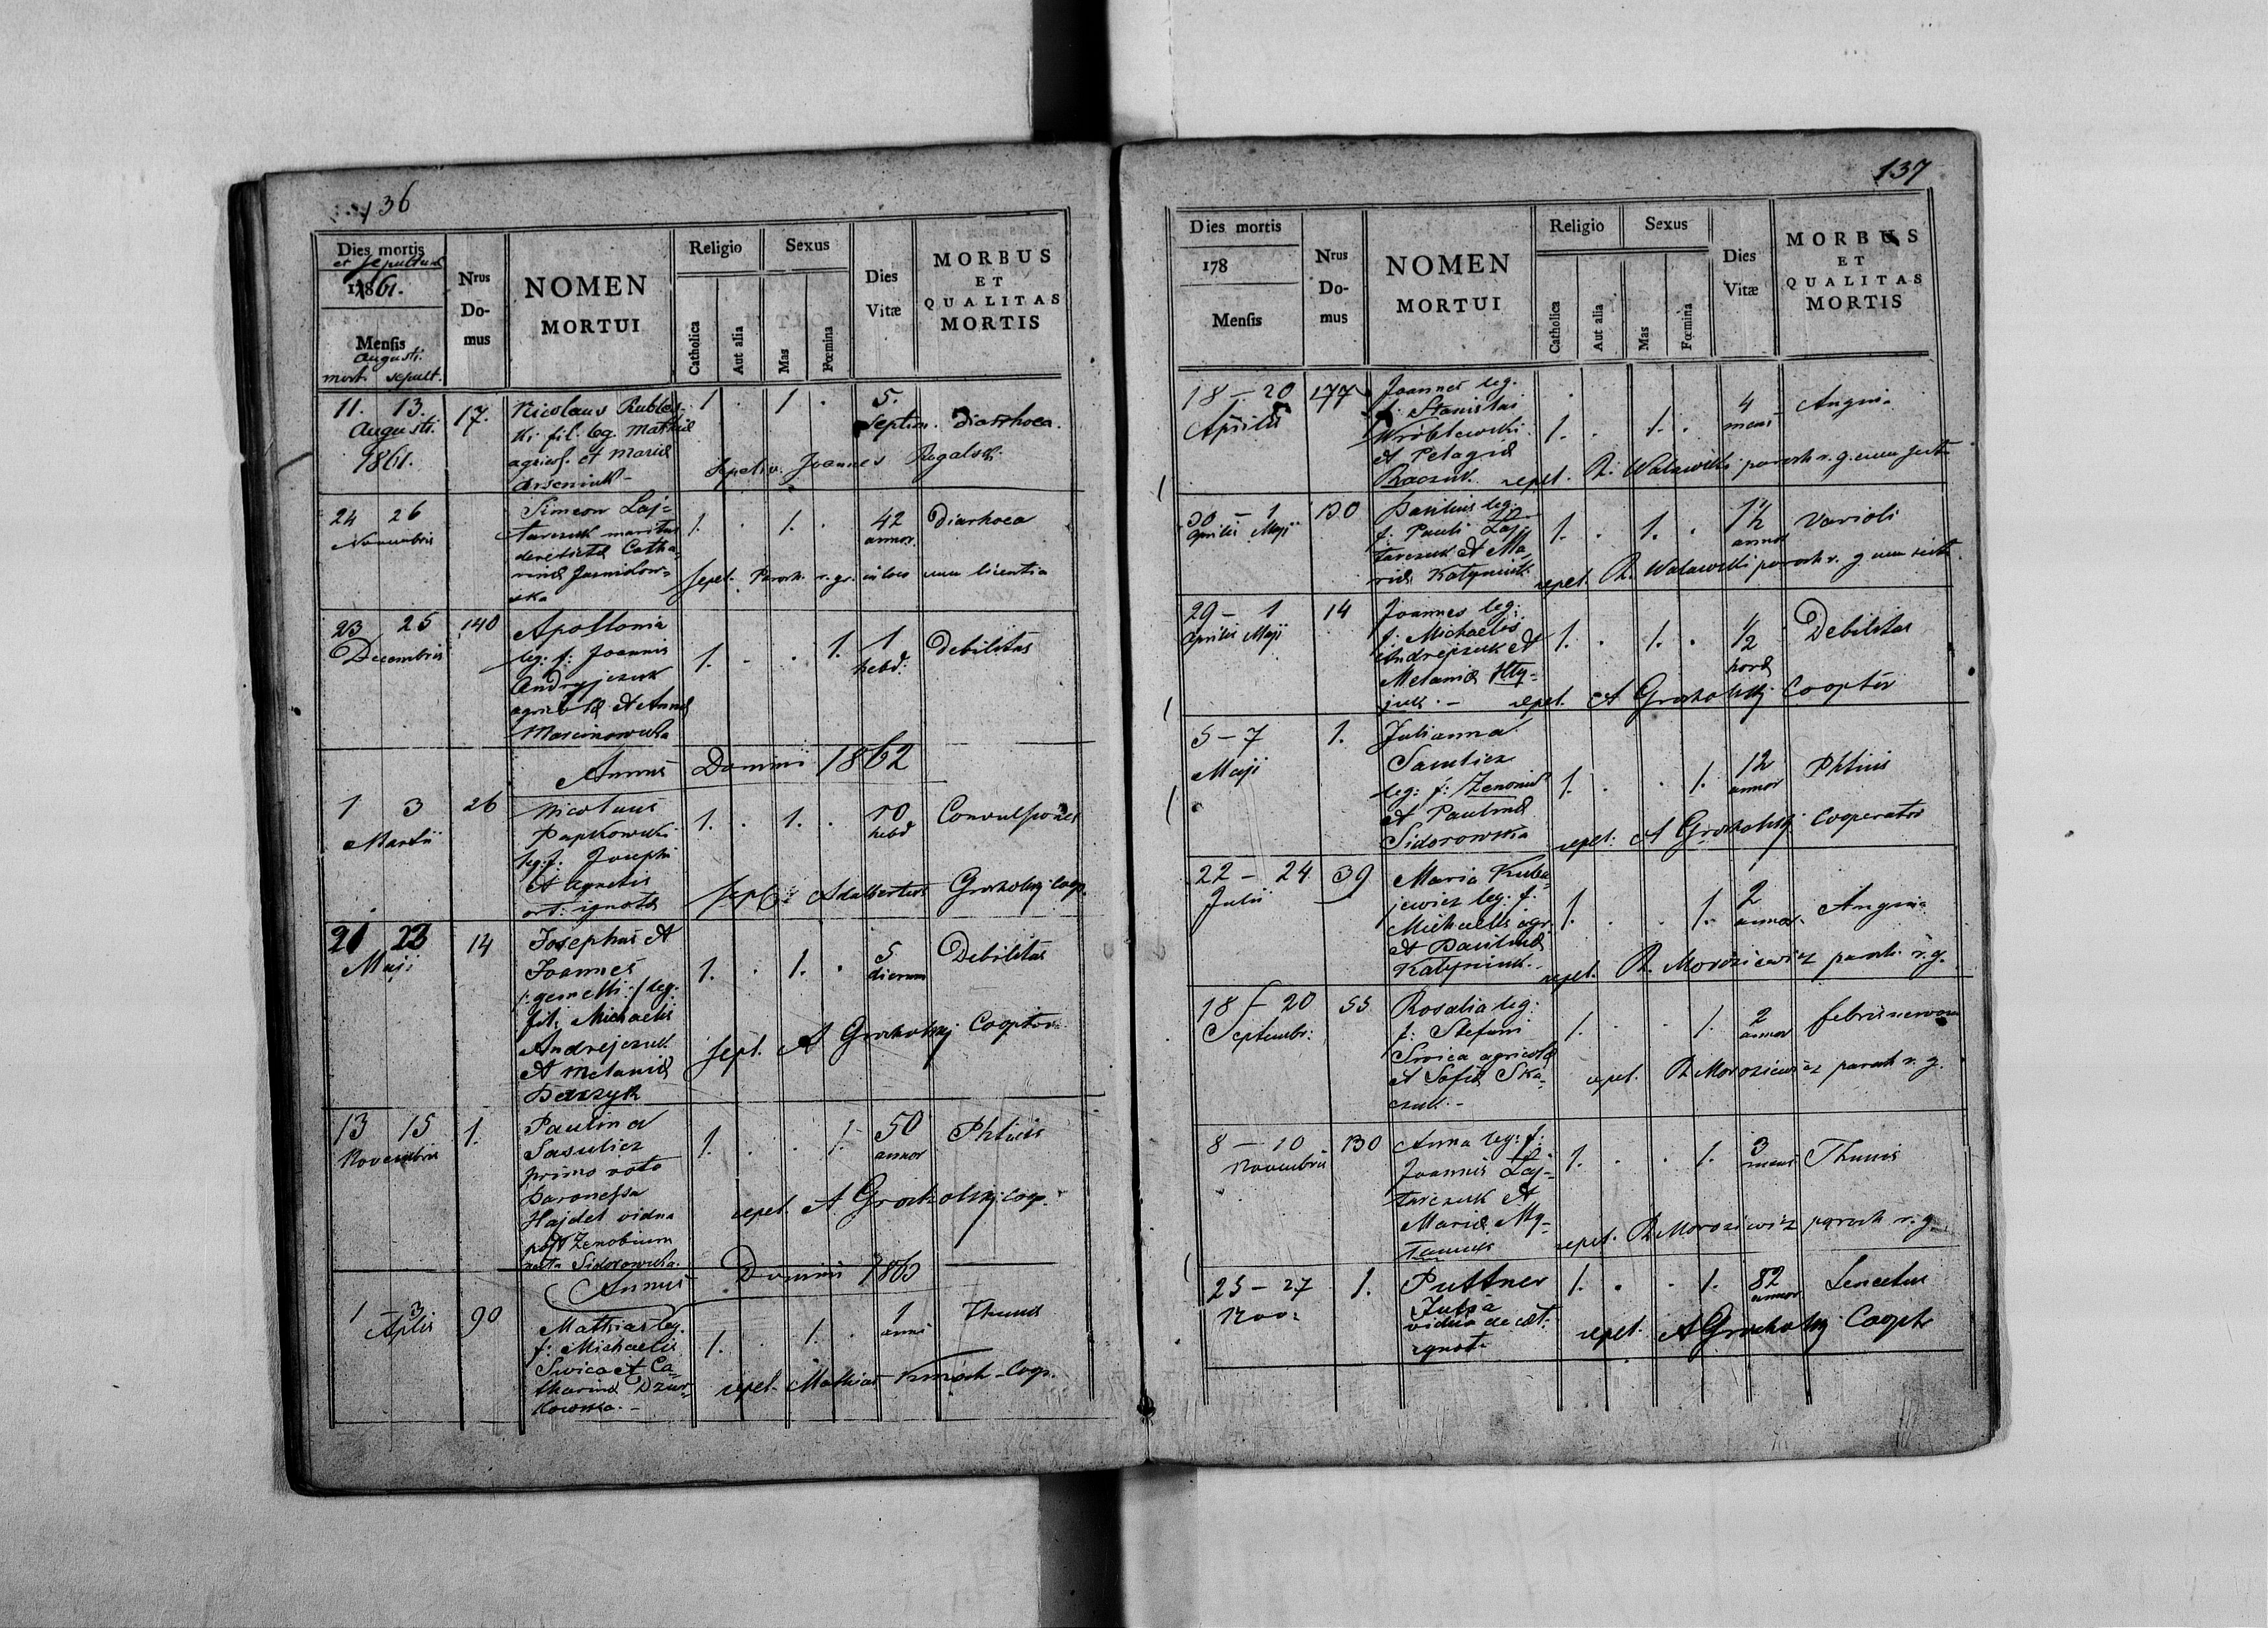 136
Dies mortis
et sepulturae
1861.
Mensis
Augusti.
mort. sepult.
Nrus
Do-
mus
NOMEN
MORTUI
Religio
Catholica
Aut alia
Sexus
Mas
Fœmina
Dies
Vitæ
MORBUS
ET
QUALITAS
MORTIS
11. 13. 17. Nicolaus 1 . 1 . 5.
Augusti. ki fil. leg. Mathiæ Septim. Diarrhoea.
1861. agricol. et Mariæ
Arseniuk Sepeliv. Joannes Rogalski
24 26 Simeon Laj-
Novembris tarczuk maritus 1. . 1. . 42 Diarhoea
derelictæ Catha- annor.
rinæ
ska Sepel. Paroch. r. gr. in loco cum licentia
23 25 140 Apollonia
Decembris leg: f: Joannis 1. . . 1. 1 Debilitas
Andryjczuk hebd:
agricolæ et Annæ
Marcinowska
Annus Domini 1862
1 3 26 Nicolaus
Martii Papkowski 1. . 1. . 10 Convulsiones
leg: f. Josephi hebd
et Agnetis
ort: ignotæ Sepl: Adalbertus Grocholskj Coop.
21 23 14 Josephus et
Maji Joannes 1. . 1. . 5 Debilitas
/: gemelli :/ leg. dierum
fil; Michaelis
Andrejczuk Sepl. A Grocholskj Cooptor
et Melaniæ
13 15 1. Paulina
Novembris Sasulicz 1. . . 1. 50 Phtisis
primo voto annor
Baronessa
Hajdel vidua sepel. A Grocholskj Coop.
post Zenobium
nata Sidorowska.
Annus Domini 1863
1 3 90 Mathias leg.
Aplis f: Michaelis 1. . 1. . 1
Swica et Ca- anni
tharinæ sepel. Mathias Coop.
137
Dies mortis
178
Mensis
Nrus
Do-
mus
NOMEN
MORTUI
Religio
Catholica
Aut alia
Sexus
Mas
Fœmina
Dies
Vitæ
MORBUS
ET
QUALITAS
MORTIS
18 – 20 177 Joannes leg.
Aprilis f. Stanislai 4 Angina
Wróblewski 1. . 1. . mens
et Pelagiæ
sepel. R. Walawski paroch r. g.
30 – 1 130 Basilius leg.
Aprilis Maji f: Pauli Laj- 1. . 1. . 1½ Varioli
tarczuk et Ma- annor
riæ Katyniuk sepel. R. Walawski paroch r. g.
29 – 1 14 Joannes leg:
Aprilis Maji f: Michaelis 1. . 1. . ½ Debilitas
Andrejczuk et horæ
Melaniæ
sepel. A Grocholskj Cooptor
5 – 7 1. Julianna
Maji Sasulicz 12 Phtisis
leg: f: Zenonis 1. . . 1. annor
et Paulinæ
Sidorowska sepel. A Grocholskj Cooperator
22 – 24 39 Maria Kuba-
Julii jewicz leg. f. 1. . . 1. 2 Angina
Michaelis agr. annor.
et Paulinæ
Katyniuk. sepel. R. Moroziewicz paroch. r. g.
18 – 20 55 Rosalia leg:
Septembr: f: Stefani 1. . . 1. 2 febris nervosa
Swica agricolæ annor
et Sofiæ Ska-
czuk.– sepel. R Moroziewicz paroch r. g.
8 – 10 130 Anna leg: f:
Novembris Joannis Laj- 1. . . 1. 3
tarczuk et mens
Mariæ
sepel. R Moroziewicz paroch r. g.
25 – 27 1. Puttner 1. . . 1. 82
Nov: Julia annor
vidua de cæt:
ignot. sepel. A Grocholskj Cooptr